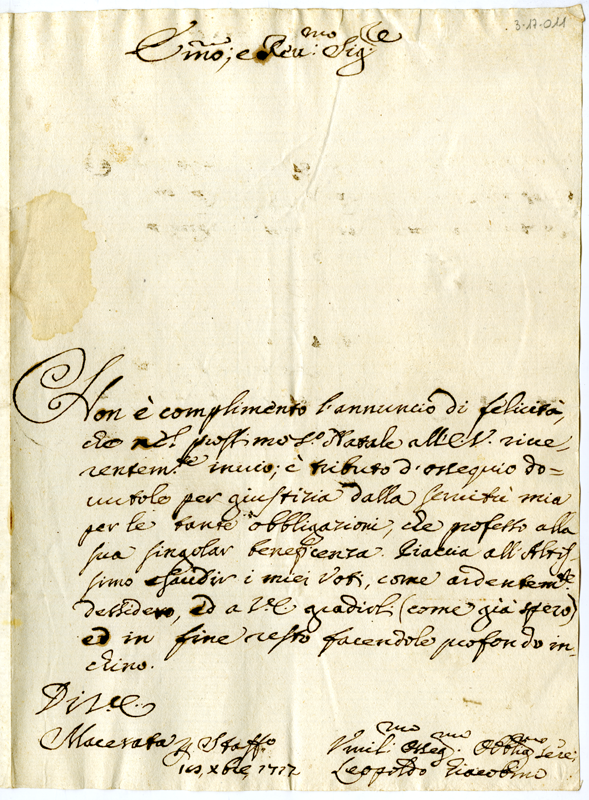 3.17.011
Em̃o; e Reu:mo Sig:re
Non è complimento l'annuncio di felicità,
che nel prossimo S.o Natale all'E.V. riue-
rentem.te inuio; è tributo d'ossequio do=
uutole per giustizia dalla seruitù mia
per le tante obbligazioni, che professo alla
sua singolar beneficenza. Piaccia all'Altis-
simo esaudir i miei Voti, come ardentem.te
dessidero, ed a V.E. gradirli (come già spero)
ed in fine resto facendole profondo in-
chino.
Di V.E.
Macerata Staff.o
xbre, 1712
Vmil:mo Osseq:mo Obblig:mo Seru;
Leopoldo Giacobini